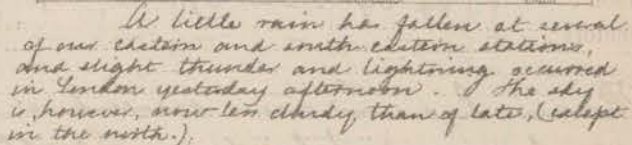 A little rain has fallen at several
of our eastern and south eastern stations,
and slight thunder and lightning occurred
in London yesterday afternoon. The sky
is, however, now less cloudy than of late, (except
in the north.).